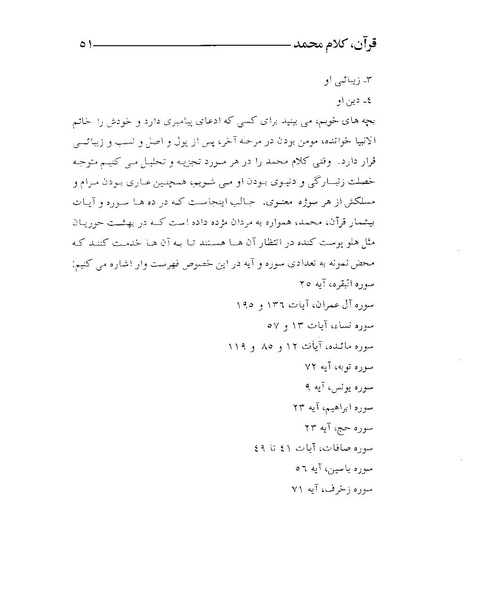 قرآن، کلام محمد ۵۱
۳ـ زیبائی او
٤ـ دین او
بچه های خوبم، می بینید برای کسی که ادعای پیامبری دارد و خودش را خاتم
الانبیا خوانده، مومن بودن در مرحله آخر، پس از پول و اصل و نسب و زیبائی
قرار دارد. وقتی کلام محمد را در هر مورد تجزیه و تحلیل می کنیم متوجه
خصلت زنبارگی و دنیوی بودن او می شویم، همچنین عاری بودن مرام و
مسلکش از هر سوژه معنوی. جالب اینجاست که در ده ها سوره و آیات
بیشمار قرآن، محمد، همواره به مردان مژده داده است که در بهشت حوریان
مثل هلو پوست کنده در انتظار آن ها هستند تا به آن ها خدمت کنند که
محض نمونه به تعدادی سوره و آیه در این خصوص فهرست وار اشاره می کنیم:
سوره البقره، آیه ۲۵
سوره آل عمران، آیات ۱۳٦ و ۱۹۵
سوره نساء، آیات ۱۳ و ۵۷
سوره مائده، آیات ۱۲ و ۸۵ و ۱۱۹
سوره توبه، آیه ۷۲
سوره یونس، آیه ۹
سوره ابراهیم، آیه ۲۳
سوره حج، آیه ۲۳
سوره صافات، آیات ٤۱ تا ٤۹
سوره یاسین، آیه ۵٦
سوره زخرف، آیه ۷۱